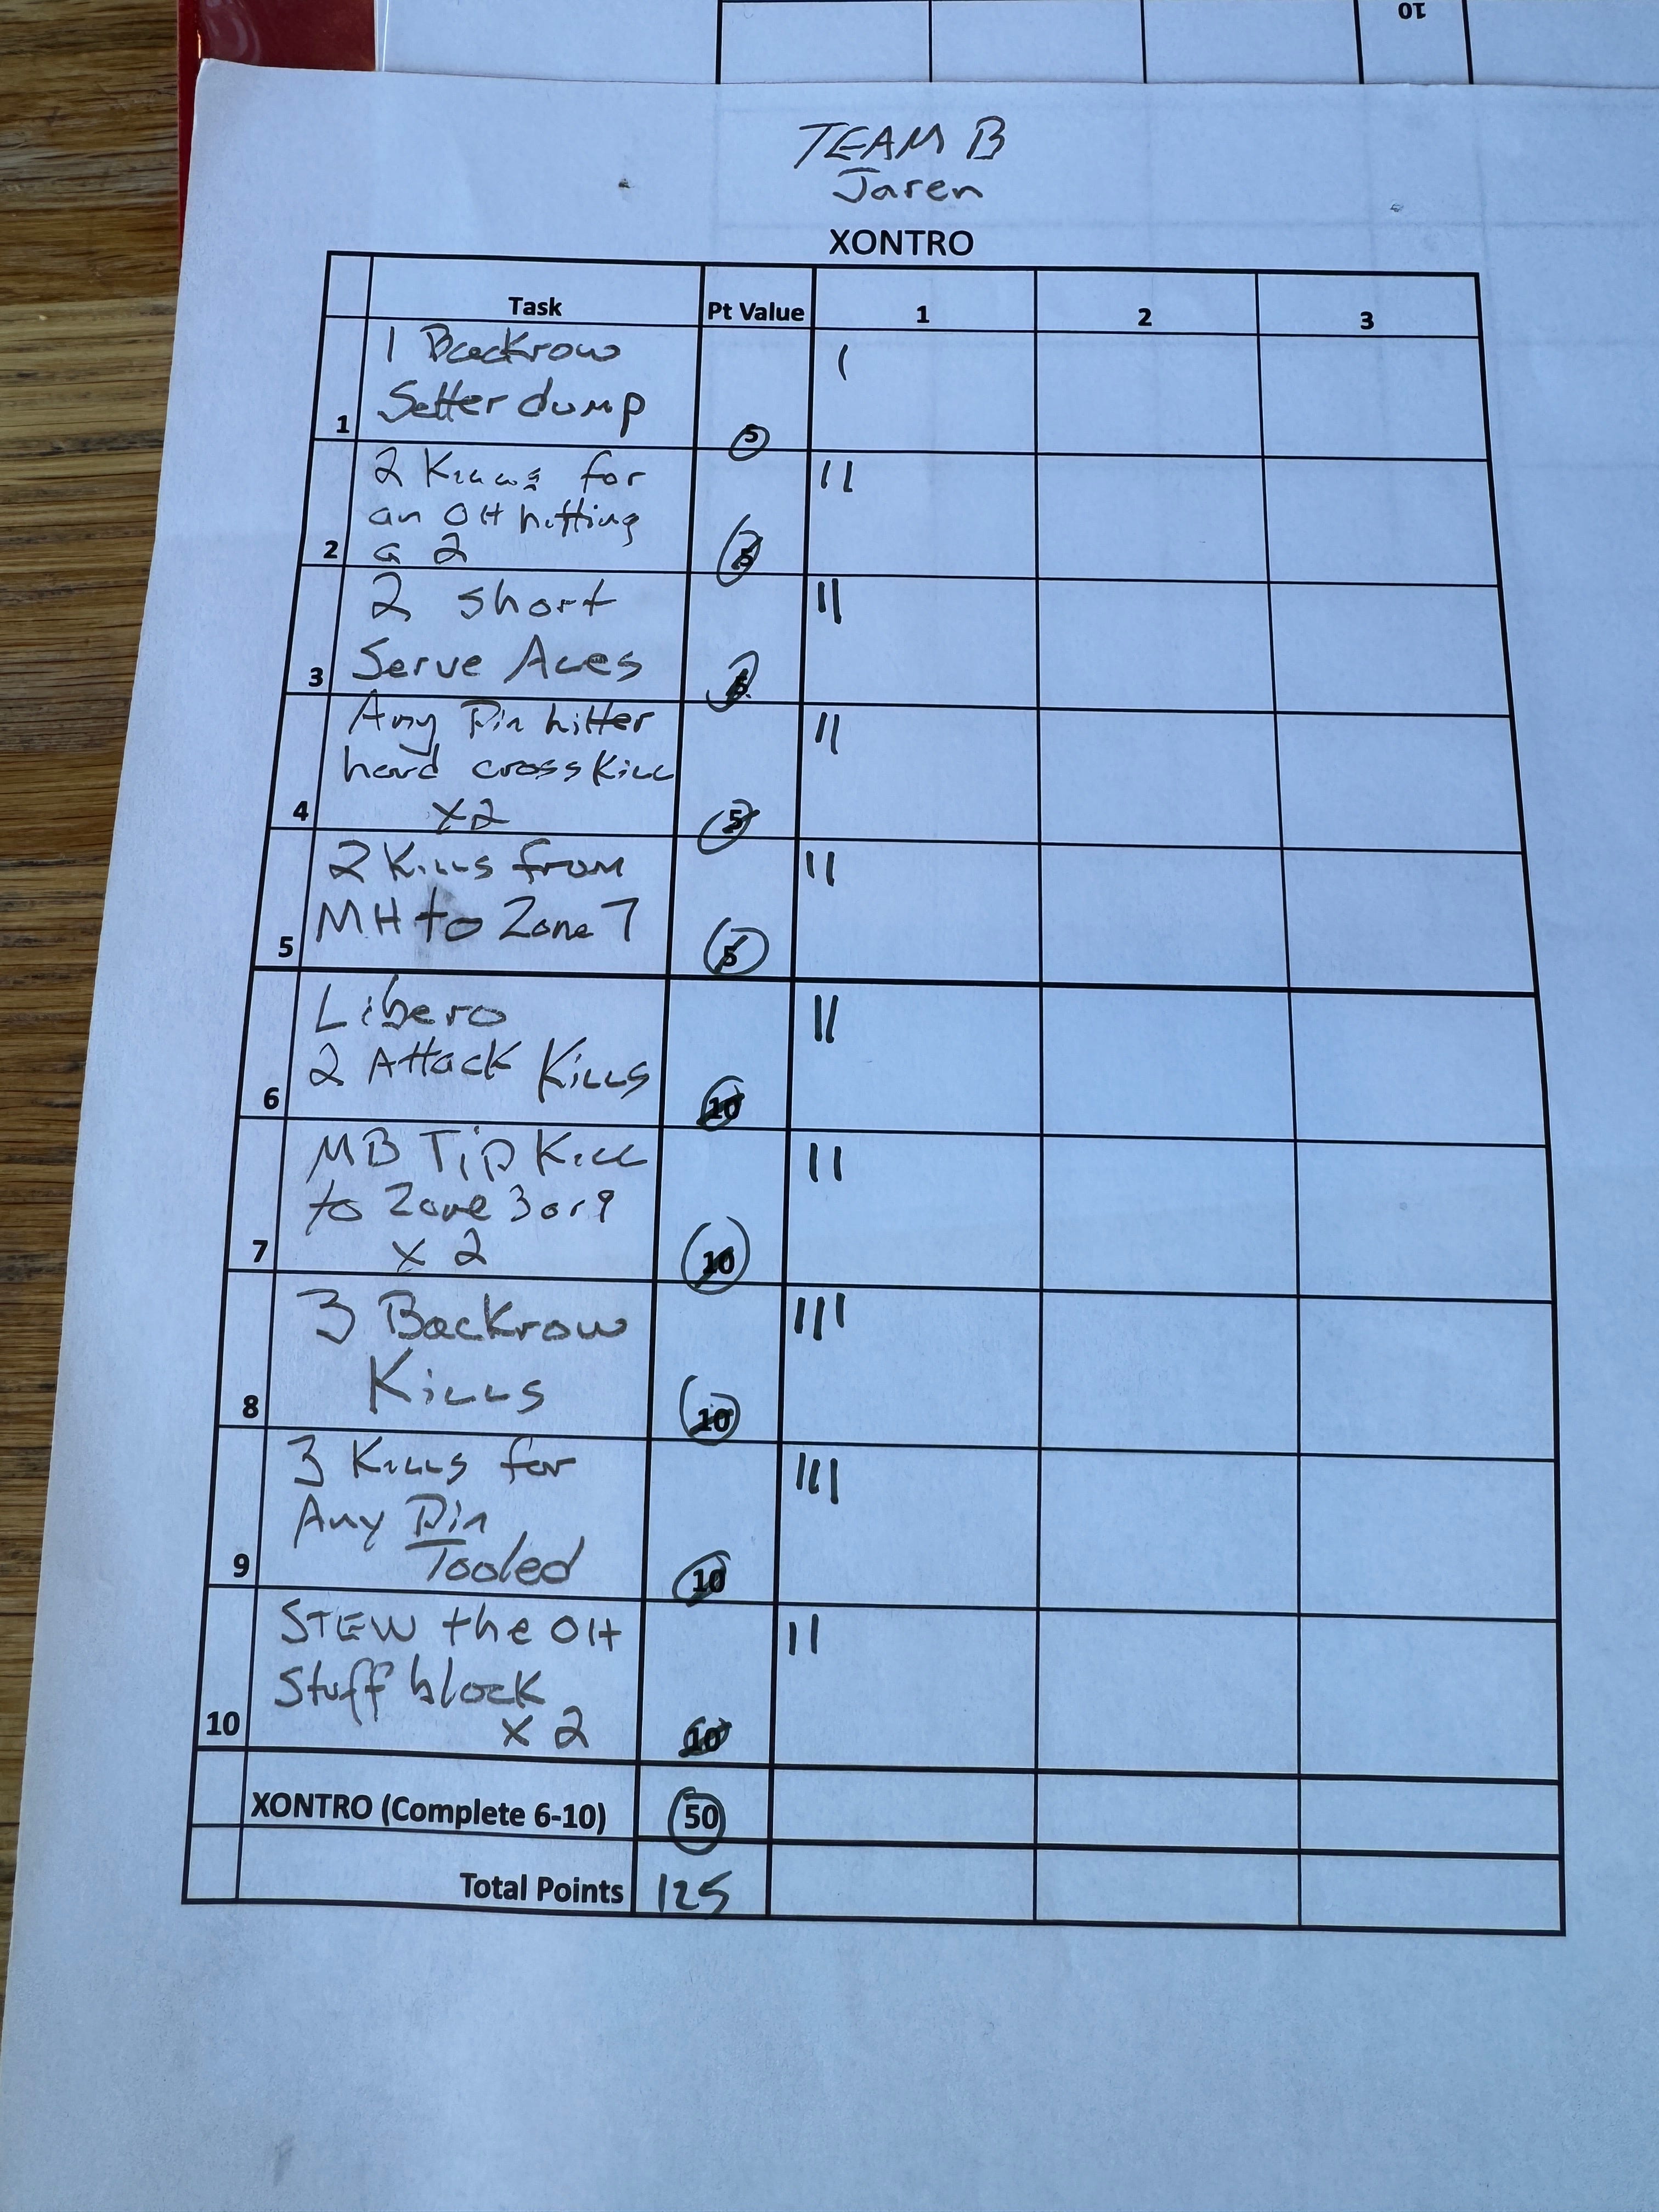 10
TEAM B
Jaren
XONTRO
Task Pt Value 1 2 3
1 Backrow
Setter dump
1 5
2 Kills for
an OH hitting
a 2
2 5
2 short
Serve Aces
3 5
Any Pin hitter
hard cross Kill
x2
4 5
2 Kills from
MH to Zone 7
5 5
Libero
2 Attack Kills
6 10
MB Tip Kill
to Zone 3 or 9
x 2
7 10
3 Backrow
Kills
8 10
3 Kills for
Any Pin
Tooled
9 10
STEW the OH
Stuff block
x 2
10 10
XONTRO (Complete 6-10) 50
Total Points 125